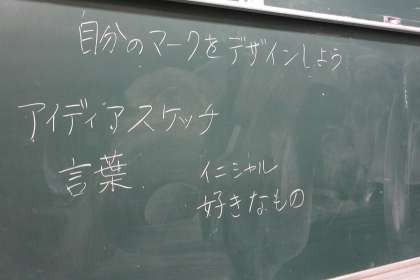 自分のマークをデザインしよう
アイディアスケッチ
言葉
イニシャル
好きなもの